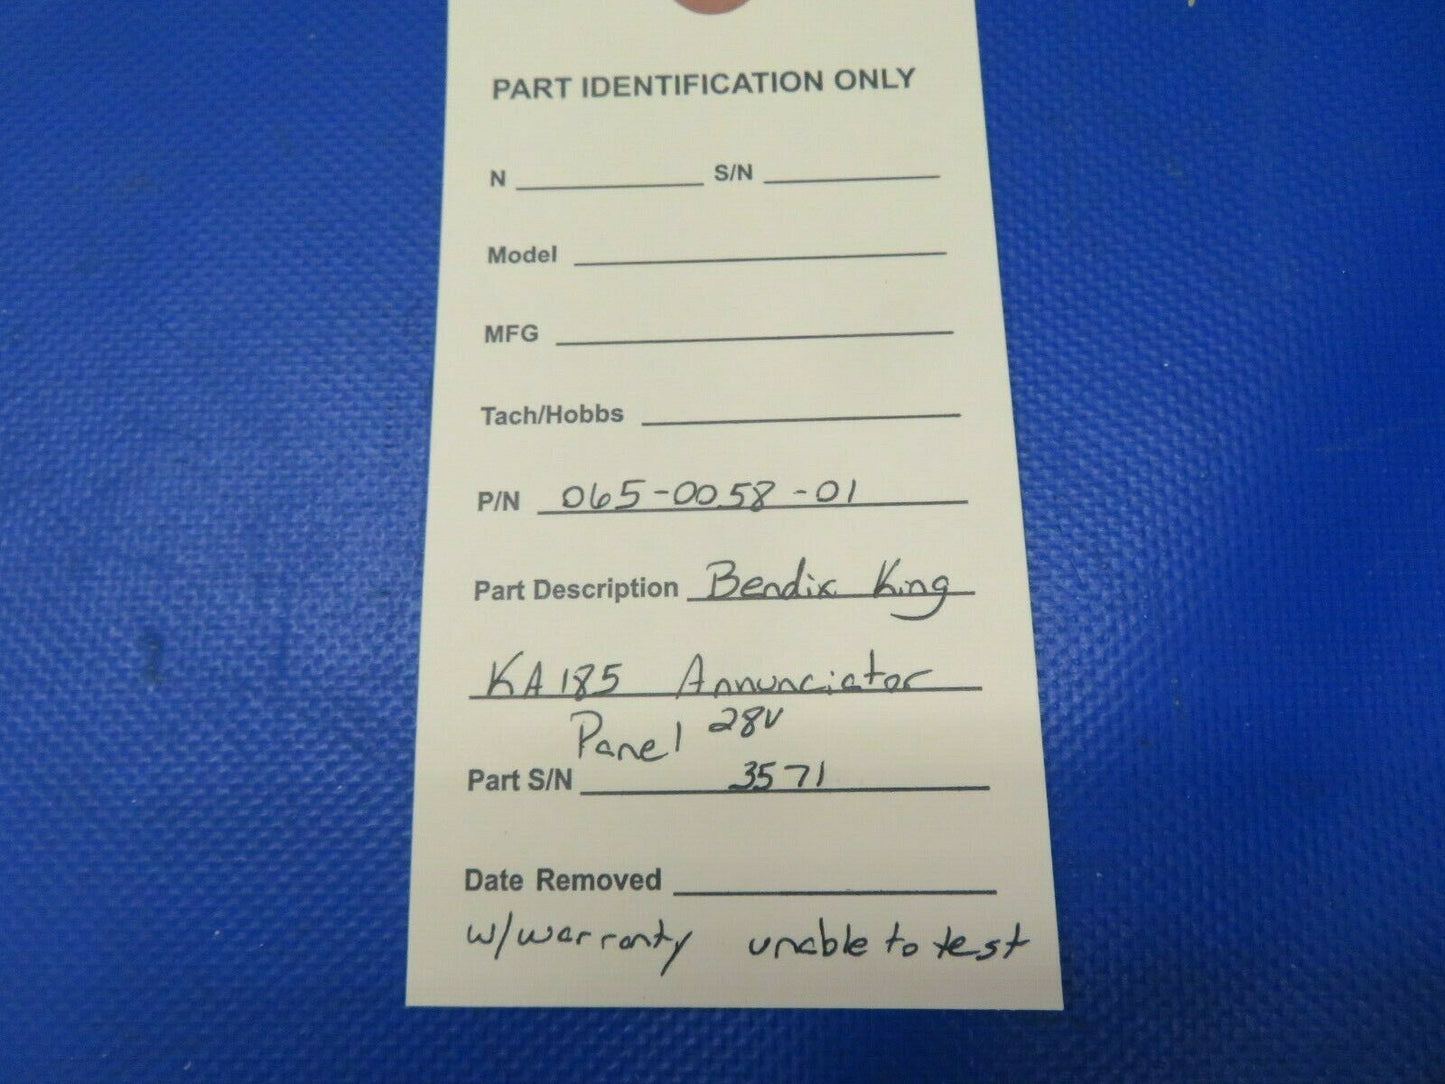 PART IDENTIFICATION ONLY
N S/N
Model
MFG
Tach/Hobbs
P/N 065-0058-01
Part Description Bendix King
KA185 Annunciator
Panel 28V
Part S/N 3571
Date Removed
w/warranty unable to test